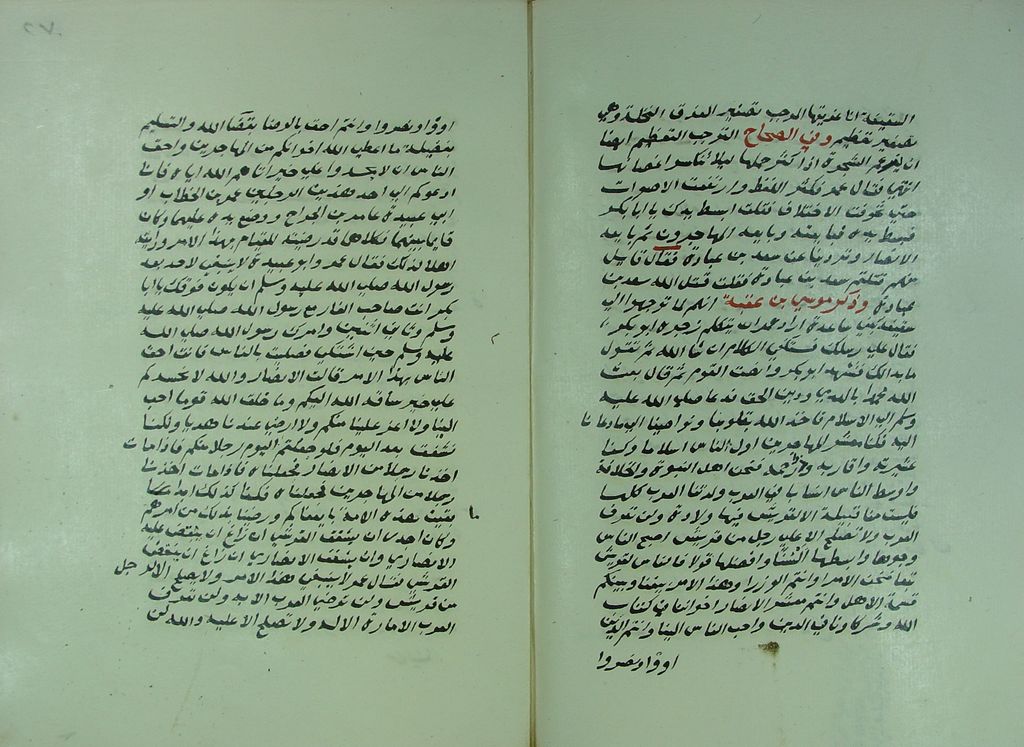 السقيفة انا عذيقها المرجب تصغير العذق النخلة وهي
تصغير تعظيم وفي الصحاح الترجيب التعظيم ايضا
ان تدعم الشجرة اذا كثر حملها ليلا تنكسر اغصانها
انتهى فقال عمر فكثر اللغط وارتفعت الاصوات
حتى تخوفت الاختلاف فقلت ابسط يدك يا ابا بكر
فبسط يده فبايعته وبايعه المهاجرون ثم بايعه
الانصار ونزونا عن سعد بن عبادة فقال قايل
منهم قتلتم سعد بن عبادة فقلت قتل الله سعد بن
عبادة وذكر موسى بن عقبة انهم لما توجهوا الى
سقيفة بني ساعدة اراد عمر ان يتكلم زجره ابو بكر
فقال على رسلك فستكفى الكلام ان شا الله ثم تقول
ما بدالك فتشهد ابو بكر وانصت القوم ثم قال بعث
الله محمدا بالهدى ودين الحق فدعا صلى الله عليه
وسلم الى الاسلام فاخذ الله بقلوبنا ونواصينا الى ما دعانا
اليه فكنا معشر المهاجرين اول الناس اسلاما وكنا
عشيرته واقاربه ونحن اهل النبوة والخلافة
واوسط الناس انسابا في العرب ولدتنا العرب كلها
فليست منا قبيلة الا لقريش فيها ولادة ولن تعرف
العرب ولا تصلح الا على رجل من قريش اصبح الناس
وجوها وابسطها السنا وافضلها قولا فالناس لقريش
تبعا فنحن الامرا وانتم الوزرا وهذا الامر بيننا وبينكم
قسمة الاهل وانتم معشر الانصار اخواننا في كتاب
الله وشركاونا في الدين واحب الناس الينا وانتم الذين
اووا ونصروا
اووا ونصروا وانتم احق بالرضا بقضا الله والتسليم
بفضيلة ما اعطى الله اخوانكم من المهاجرين واحق
الناس ان لا تحسدوا على خير اتاهم الله اياه فانا
ادعوكم الى احد هذين الرجلين عمر بن الخطاب او
ابي عبيدة عامر بن الجراح ووضع يده عليهما وكان
قايما بينهما فكلاهما قد رضيته للقيام بهذا الامر ورايته
اهلا لذلك فقال عمر وابو عبيدة لا ينبغي لاحد بعد
رسول الله صلى الله عليه وسلم ان يكون فوقك يا ابا
بكر انت صاحب الغار مع رسول الله صلى الله عليه
وسلم وثاني اثنين وامرك رسول الله صلى الله
عليه وسلم حين اشتكى فصليت بالناس فانت احق
الناس بهذا الامر قالت الانصار والله لا نحسدكم
على خير ساقه الله اليكم وما خلق الله قوما احب
الينا ولا اعز علينا منكم ولا ارضى عندنا هديا ولكنا
نشفق بعد اليوم فلو جعلتم اليوم رجلا منكم فاذا مات
اخذنا رجلا من الانصار فجعلناه فاذا مات اخذنا
رجلا من المهاجرين فجعلناه فكنا كذلك ابدا
ما بقيت هذه الامة بايعناكم ورضينا بذلك من امركم
وكان اجدر ان يشفق القرشي ان زاغ ان ينقض عليه
الانصاري وان يشفق الانصاري ان زاغ ان ينقض
القرشي فقال عمر لا ينبغي هذا الامر ولا يصلح الا لرجل
من قريش ولن ترضى العرب الا به ولن تعرف
العرب الامارة الا له ولا تصلح الا عليه والله لن